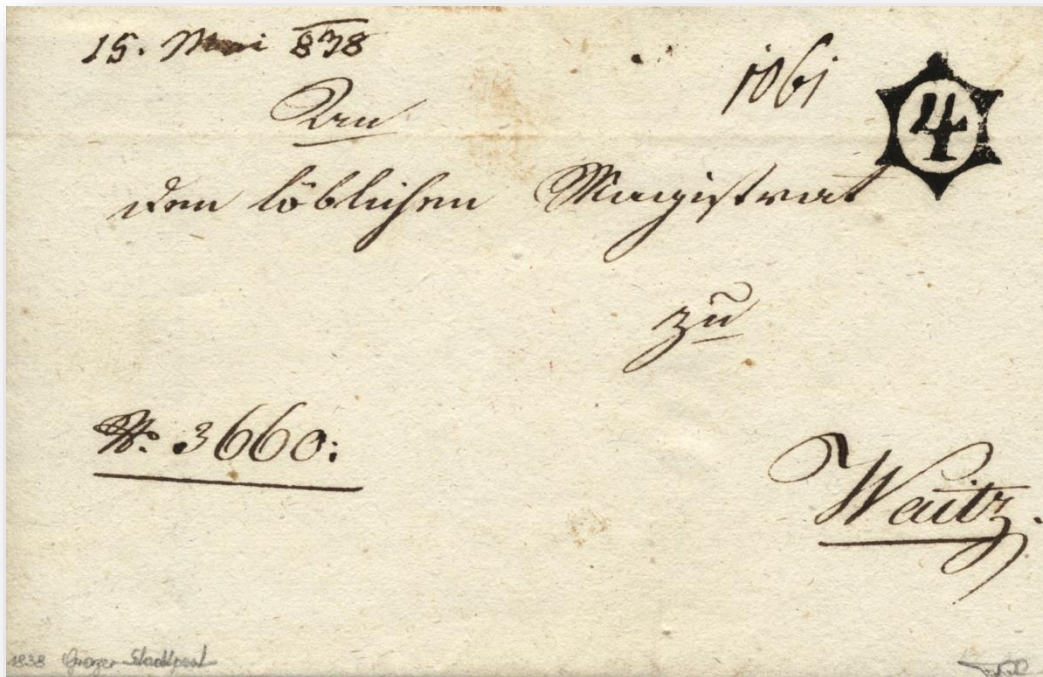 15. Mai 838
1061
4
An
den löblichen Magistrat
zu
N. 3660:
Weitz.
1838 Grazer Stadtpost